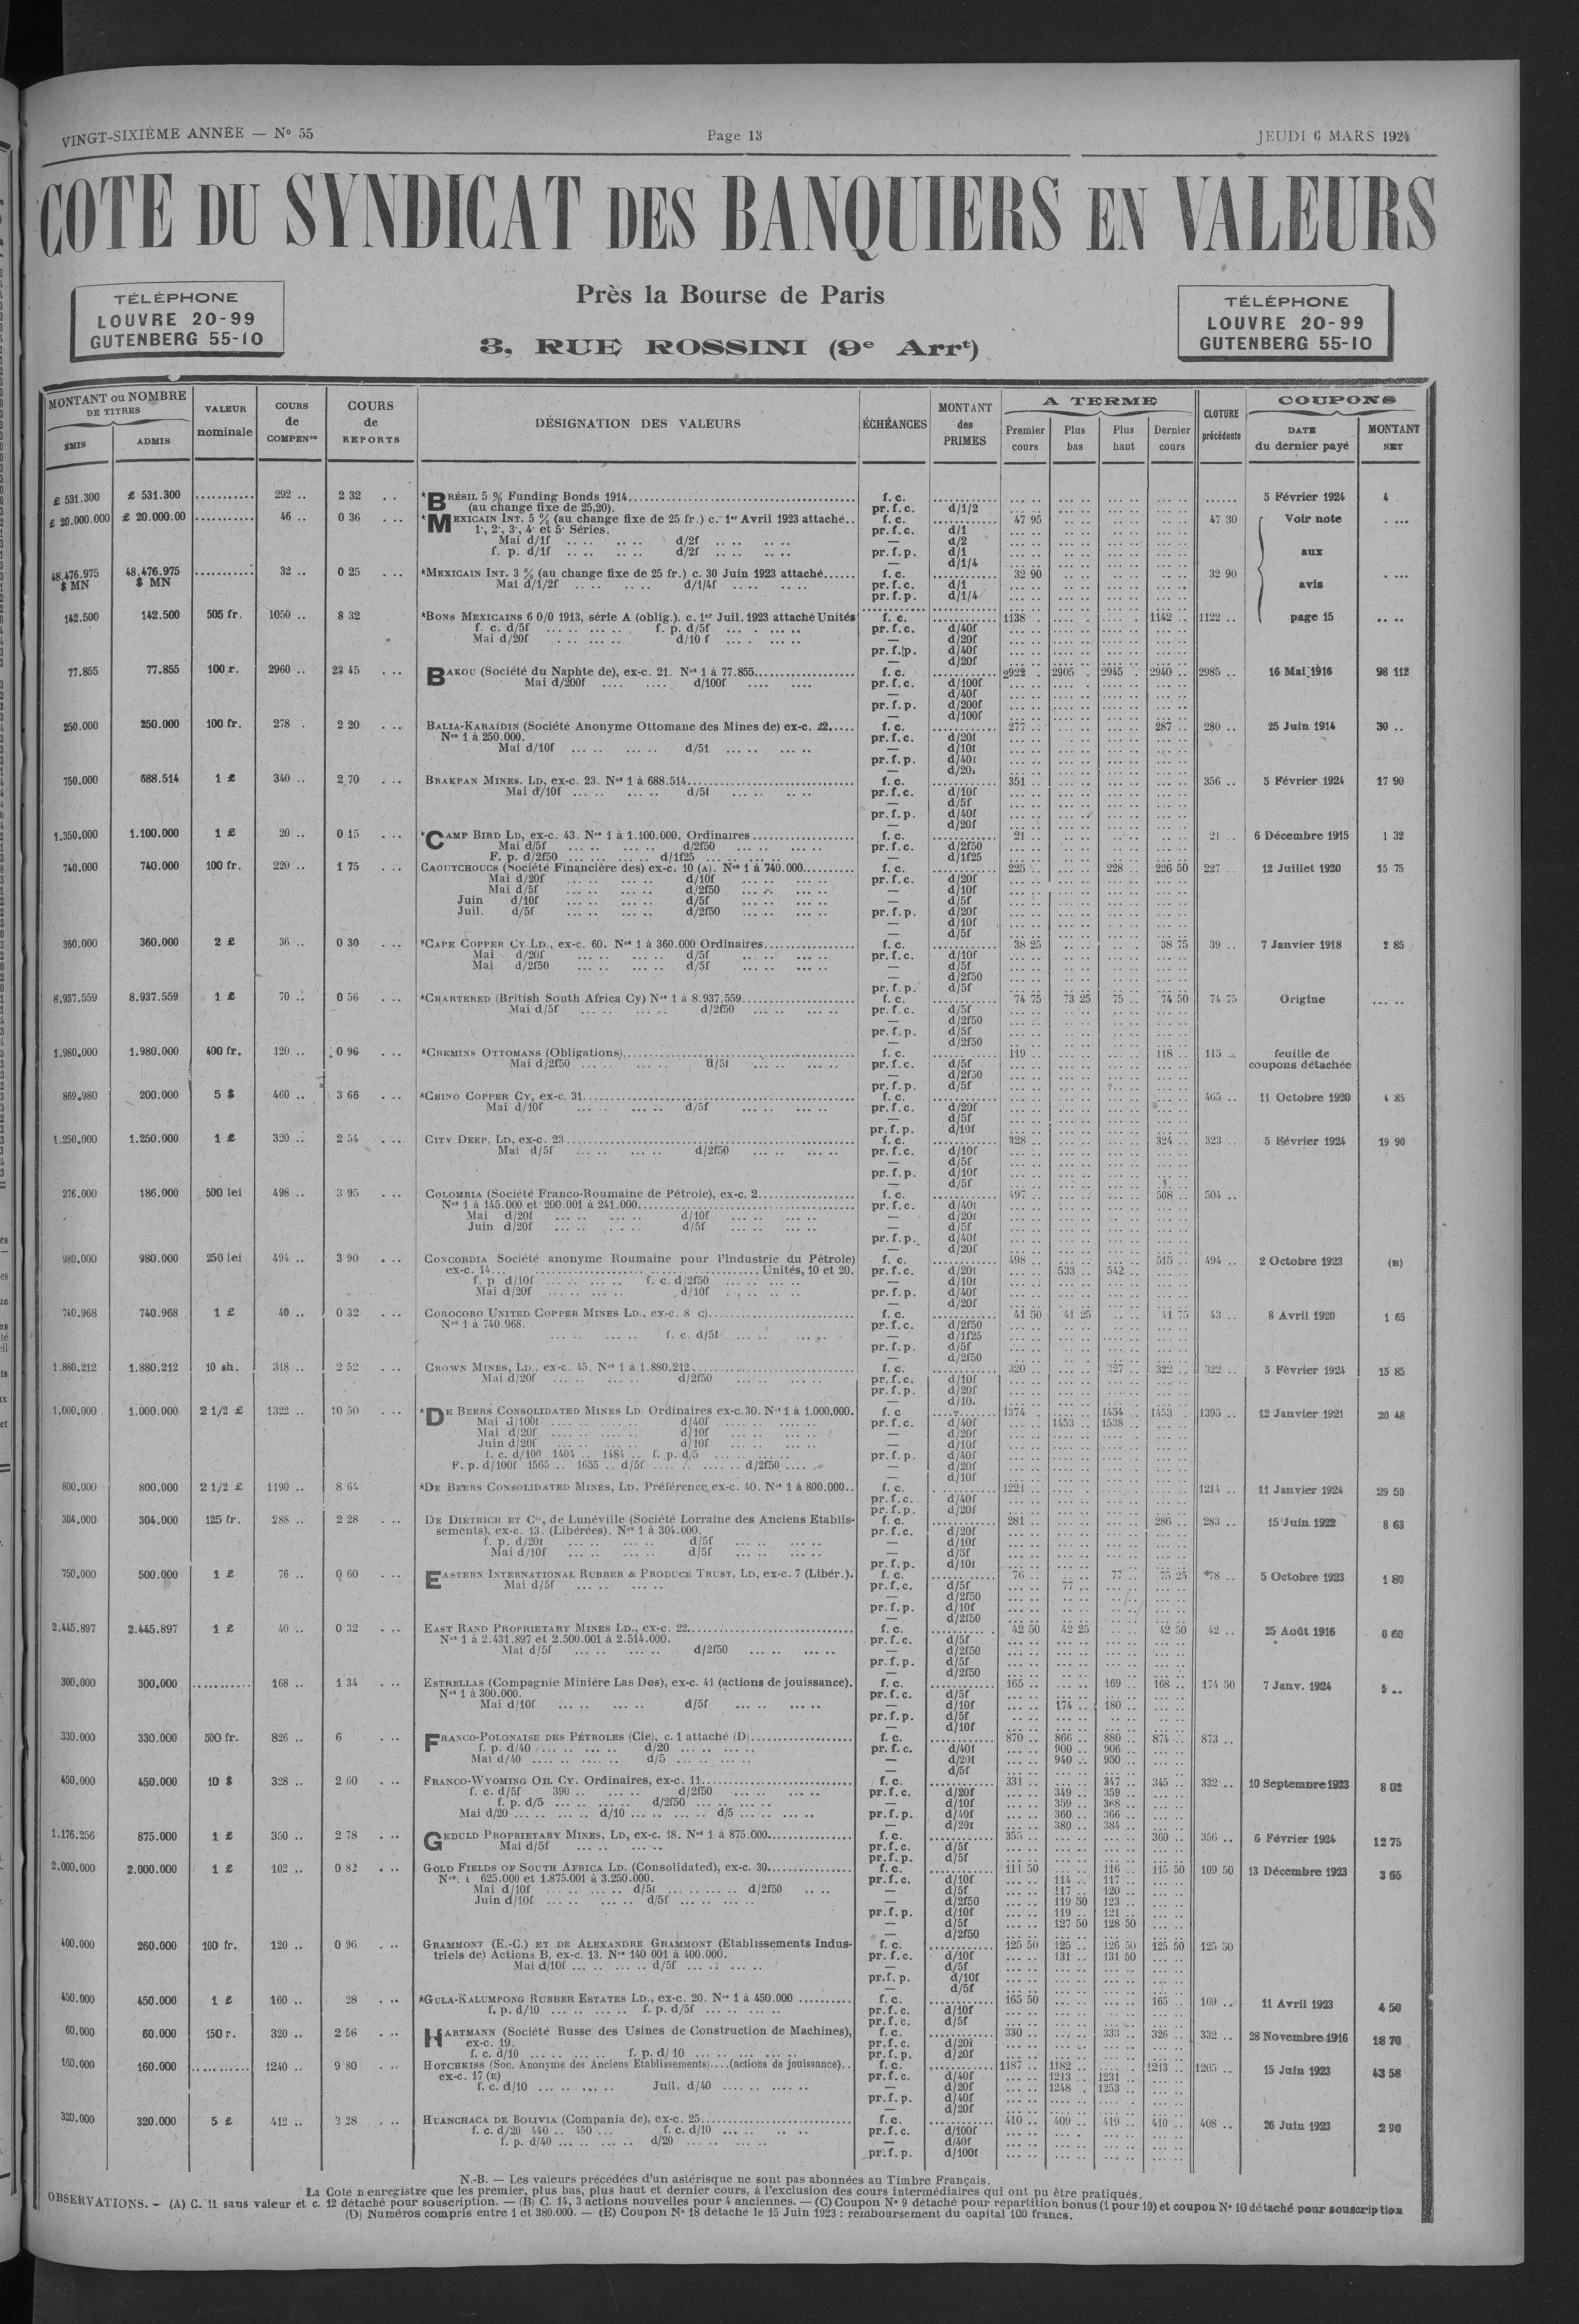 VINGT-SIXIÈME ANNÉE — Nº 55
Page 13
JEUDI 6 MARS 1924
COTE DU SYNDICAT DES BANQUIERS EN VALEURS
TÉLÉPHONE
LOUVRE 20-99
GUTENBERG 55-10
Près la Bourse de Paris
3, RUE ROSSINI (9e Arrt)
TÉLÉPHONE
LOUVRE 20-99
GUTENBERG 55-10
MONTANT ou NOMBRE DE TITRES
ÉMIS
ADMIS
VALEUR nominale
COURS de COMPENon
COURS de REPORTS
DÉSIGNATION DES VALEURS
ÉCHÉANCES
MONTANT des PRIMES
A TERME
Premier cours
Plus bas
Plus haut
Dernier cours
CLOTURE précédente
COUPONS
DATE du dernier payé
MONTANT NET
£ 531.300 £ 531.300 292 .. 2 32 *BRÉSIL 5 % Funding Bonds 1914 f. c. 5 Février 1924 4
(au change fixe de 25,20). pr. f. c. d/1/2
£ 20.000.000 £ 20.000.00 46 .. 0 36 *MEXICAIN INT. 5 % (au change fixe de 25 fr.) c. 1er Avril 1923 attaché.. f. c. 47 95 47 30 Voir note
1·, 2·, 3·, 4· et 5· Séries. pr. f. c. d/1
Mai d/1f d/2f — d/2
f. p. d/1f d/2f pr. f. p. d/1 aux
— d/1/4
48.476.975 $ MN 48.476.975 $ MN 32 .. 0 25 *MEXICAIN INT. 3 % (au change fixe de 25 fr.) c. 30 Juin 1923 attaché f. c. 32 90 32 90
Mai d/1/2f d/1/4f pr. f. c. d/1 avis
pr. f. p. d/1/4
142.500 142.500 505 fr. 1050 .. 8 32 *BONS MEXICAINS 6 0/0 1913, série A (oblig.). c. 1er Juil. 1923 attaché Unités f. c. 1138 .. 1142 .. 1122 .. page 15
f. c. d/5f f. p. d/5f pr. f. c. d/40f
Mai d/20f d/10 f — d/20f
pr. f. p. d/40f
— d/20f
77.855 77.855 100 r. 2960 .. 23 45 BAKOU (Société du Naphte de), ex-c. 21. Nos 1 à 77.855 f. c. 2922 . 2905 . 2945 . 2940 .. 2985 .. 16 Mai 1916 98 112
Mai d/200f d/100f pr. f. c. d/100f
— d/40f
pr. f. p. d/200f
— d/100f
250.000 250.000 100 fr. 278 . 2 20 BALIA-KARAÏDIN (Société Anonyme Ottomane des Mines de) ex-c. 22 f. c. 277 .. 287 .. 280 .. 25 Juin 1914 30 ..
Nos 1 à 250.000. pr. f. c. d/20f
Mai d/10f d/5f — d/10f
pr. f. p. d/40f
— d/20f
750.000 688.514 1 £ 340 .. 2 70 BRAKPAN MINES. LD, ex-c. 23. Nos 1 à 688.514 f. c. 351 .. 356 .. 5 Février 1924 17 90
Mai d/10f d/5f pr. f. c. d/10f
— d/5f
pr. f. p. d/40f
— d/20f
1.350.000 1.100.000 1 £ 20 .. 0 15 *CAMP BIRD LD, ex-c. 43. Nos 1 à 1.100.000. Ordinaires f. c. 21 .. 21 .. 6 Décembre 1915 1 32
Mai d/5f d/2f50 pr. f. c. d/2f50
F. p. d/2f50 d/1f25 — d/1f25
740.000 740.000 100 fr. 220 .. 1 75 CAOUTCHOUCS (Société Financière des) ex-c. 10 (A). Nos 1 à 740.000 f. c. 225 .. 228 .. 226 50 227 .. 12 Juillet 1920 15 75
Mai d/20f d/10f pr. f. c. d/20f
Mai d/5f d/2f50 — d/10f
Juin d/10f d/5f — d/5f
Juil. d/5f d/2f50 pr. f. p. d/20f
— d/10f
— d/5f
360.000 360.000 2 £ 36 .. 0 30 *CAPE COPPER CY LD., ex-c. 60. Nos 1 à 360.000 Ordinaires f. c. 38 25 38 75 39 .. 7 Janvier 1918 2 85
Mai d/20f d/5f pr. f. c. d/10f
Mai d/2f50 d/5f — d/5f
— d/2f50
pr. f. p. d/5f
8.937.559 8.937.559 1 £ 70 .. 0 56 *CHARTERED (British South Africa Cy) Nos 1 à 8.937.559 f. c. 74 75 73 25 75 .. 74 50 74 75 Origine
Mai d/5f d/2f50 pr. f. c. d/5f
— d/2f50
pr. f. p. d/5f
— d/2f50
1.980.000 1.980.000 400 fr. 120 .. 0 96 *CHEMINS OTTOMANS (Obligations) f. c. 119 .. 118 .. 115 .. feuille de
Mai d/2f50 d/5f pr. f. c. d/5f coupons détachée
— d/2f50
pr. f. p. d/5f
869.980 200.000 5 $ 460 .. 3 66 *CHINO COPPER CY, ex-c. 31 f. c. 465 .. 11 Octobre 1920 4 85
Mai d/10f d/5f pr. f. c. d/20f
— d/5f
pr. f. p. d/10f
1.250.000 1.250.000 1 £ 320 .. 2 54 CITY DEEP, LD, ex-c. 23 f. c. 328 .. 324 .. 323 .. 5 Février 1924 19 90
Mai d/5f d/2f50 pr. f. c. d/10f
— d/5f
pr. f. p. d/10f
— d/5f
276.000 186.000 500 lei 498 .. 3 95 COLOMBIA (Société Franco-Roumaine de Pétrole), ex-c. 2 f. c. 497 .. 508 .. 504 ..
Nos 1 à 145.000 et 200.001 à 241.000 pr. f. c. d/40f
Mai d/20f d/10f — d/20f
Juin d/20f d/5f — d/5f
pr. f. p. d/40f
— d/20f
980.000 980.000 250 lei 494 .. 3 90 CONCORDIA Société anonyme Roumaine pour l'Industrie du Pétrole) f. c. 498 .. 515 .. 494 .. 2 Octobre 1923 (B)
ex-c. 14 Unités, 10 et 20. pr. f. c. d/20f 533 .. 542 ..
f. p d/10f f. c. d/2f50 — d/10f
Mai d/20f d/10f pr. f. p. d/40f
— d/20f
740.968 740.968 1 £ 40 .. 0 32 COROCORO UNITED COPPER MINES LD., ex-c. 8 c) f. c. 41 50 41 25 41 75 43 .. 8 Avril 1920 1 65
Nos 1 à 740.968. pr. f. c. d/2f50
f. c. d/5f — d/1f25
pr. f. p. d/5f
— d/2f50
1.880.212 1.880.212 10 sh. 318 .. 2 52 CROWN MINES, LD., ex-c. 45. Nos 1 à 1.880.212 f. c. 320 .. 327 .. 322 .. 322 .. 5 Février 1924 15 85
Mai d/20f d/2f50 pr. f. c. d/10f
pr. f. p. d/20f
— d/10.
1.000.000 1.000.000 2 1/2 £ 1322 .. 10 50 *DE BEERS CONSOLIDATED MINES LD. Ordinaires ex-c. 30. Nos 1 à 1.000.000. f. c 1374 .. 1454 .. 1453 . 1395 .. 12 Janvier 1921 20 48
Mai d/100f d/40f pr. f. c. d/40f 1453 .. 1538 ..
Mai d/20f d/10f — d/20f
Juin d/20f d/10f — d/10f
f. c. d/100 1404 .. 1484 .. f. p. d/5 pr. f. p. d/40f
F. p. d/100f 1565 .. 1655 .. d/5f d/2f50 — d/20f
— d/10f
800.000 800.000 2 1/2 £ 1190 .. 8 64 *DE BEERS CONSOLIDATED MINES, LD. Préférence ex-c. 40. Nos 1 à 800.000.. f. c. 1221 .. 1214 .. 11 Janvier 1924 29 50
pr. f. c. d/40f
pr. f. p. d/20f
304.000 304.000 125 fr. 288 .. 2 28 DE DIÉTRICH ET Cie, de Lunéville (Société Lorraine des Anciens Etablis- f. c. 281 .. 286 .. 283 .. 15 Juin 1922 8 63
sements), ex-c. 13. (Libérées). Nos 1 à 304.000. pr. f. c. d/20f
f. p. d/20f d/5f — d/10f
Mai d/10f d/5f — d/5f
pr. f. p. d/10f
750.000 500.000 1 £ 76 .. 0 60 EASTERN INTERNATIONAL RUBBER & PRODUCE TRUST, LD, ex-c. 7 (Libér.). f. c. 76 .. 77 .. 75 25 *78 .. 5 Octobre 1923 1 80
Mai d/5f pr. f. c. d/5f 77 ..
— d/2f50
pr. f. p. d/10f
— d/2f50
2.445.897 2.445.897 1 £ 40 .. 0 32 EAST RAND PROPRIETARY MINES LD., ex-c. 22 f. c. 42 50 42 25 42 50 42 .. 25 Août 1916 0 60
Nos 1 à 2.431.897 et 2.500.001 à 2.514.000. pr. f. c. d/5f
Mai d/5f d/2f50 — d/2f50
pr. f. p. d/5f
— d/2f50
300.000 300.000 168 .. 1 34 ESTRELLAS (Compagnie Minière Las Dos), ex-c. 41 (actions de jouissance). f. c. 165 .. 169 .. 168 .. 174 50 7 Janv. 1924 5 ..
Nos 1 à 300.000. pr. f. c. d/5f
Mai d/10f d/5f — d/10f 174 .. 180 ..
pr. f. p. d/5f
— d/10f
330.000 330.000 500 fr. 826 .. 6 FRANCO-POLONAISE DES PÉTROLES (Cie), c. 1 attaché (D) f. c. 870 .. 866 .. 880 .. 874 .. 873 ..
f. p. d/40 d/20 pr. f. c. d/40f 900 .. 906 ..
Mai d/40 d/5 — d/20f 940 .. 950 ..
— d/5f
450.000 450.000 10 $ 328 .. 2 60 FRANCO-WYOMING OIL CY. Ordinaires, ex-c. 11 f. c. 331 .. 347 .. 345 .. 332 .. 10 Septembre 1923 8 02
f. c. d/5f 390 .. d/2f50 pr. f. c. d/20f 349 .. 359 ..
f. p. d/5 d/2f50 — d/10f 359 .. 368 ..
Mai d/20 d/10 d/5 pr. f. p. d/40f 360 .. 366 ..
— d/20f 380 .. 384 ..
1.176.256 875.000 1 £ 350 .. 2 78 GEDULD PROPRIETARY MINES, LD, ex-c. 18. Nos 1 à 875.000 f. c. 355 .. 360 .. 356 .. 6 Février 1924 12 75
Mai d/5f pr. f. c. d/5f
pr. f. p. d/5f
2.000.000 2.000.000 1 £ 102 .. 0 82 GOLD FIELDS OF SOUTH AFRICA LD. (Consolidated), ex-c. 30 f. c. 111 50 116 .. 115 50 109 50 13 Décembre 1923 3 65
Nos 1 625.000 et 1.875.001 à 3.250.000. pr. f. c. d/10f 114 .. 117 ..
Mai d/10f d/5f d/2f50 — d/5f 117 .. 120 ..
Juin d/10f d/5f — d/2f50 119 50 123 ..
pr. f. p. d/10f 119 .. 121 ..
— d/5f 127 50 128 50
— d/2f50
400.000 260.000 100 fr. 120 .. 0 96 GRAMMONT (E.-C.) ET DE ALEXANDRE GRAMMONT (Etablissements Indus- f. c. 125 50 125 .. 126 50 125 50 125 50
triels de) Actions B, ex-c. 13. Nos 140 001 à 400.000. pr. f. c. d/10f 131 .. 131 50
Mai d/10f d/5f — d/5f
pr. f. p. d/10f
— d/5f
450.000 450.000 1 £ 160 .. 28 *GULA-KALUMPONG RUBBER ESTATES LD., ex-c. 20. Nos 1 à 450.000 f. c. 165 50 165 .. 169 .. 11 Avril 1923 4 50
f. p. d/10 f. p. d/5f pr. f. c. d/10f
pr. f. c. d/5f
60.000 60.000 150 r. 320 .. 2 56 HARTMANN (Société Russe des Usines de Construction de Machines), f. c. 330 .. 333 .. 326 .. 332 .. 28 Novembre 1916 18 70
ex-c. 19. pr. f. c. d/20f
f. c. d/10 f. p. d/ 10 pr. f. p. d/20f
160.000 160.000 1240 .. 9 80 HOTCHKISS (Soc. Anonyme des Anciens Etablissements)....(actions de jouissance).. f. c. 1187 .. 1182 .. 1213 .. 1205 .. 15 Juin 1923 43 58
ex-c. 17 (E) pr. f. c. d/40f 1213 .. 1231 ..
f. c. d/10 Juil. d/40 — d/20f 1248 . 1253 ..
pr. f. p. d/40f
— d/20f
320.000 320.000 5 £ 412 .. 3 28 HUANCHACA DE BOLIVIA (Compania de), ex-c. 25 f. c. 410 .. 409 .. 419 .. 410 .. 408 .. 26 Juin 1923 2 90
f. c. d/20 440 .. 450 ... f. c. d/10 pr. f. c. d/100f
f. p. d/40 d/20 — d/40f
pr. f. p. d/100f
N.-B. — Les valeurs précédées d'un astérisque ne sont pas abonnées au Timbre Français.
La Cote n enregistre que les premier, plus bas, plus haut et dernier cours, à l'exclusion des cours intermédiaires qui ont pu être pratiqués.
OBSERVATIONS. — (A) C. 11 sans valeur et c. 12 détaché pour souscription. — (B) C. 14, 3 actions nouvelles pour 4 anciennes. — (C) Coupon Nº 9 détaché pour répartition bonus (1 pour 10) et coupon Nº 10 détaché pour souscription
(D) Numéros compris entre 1 et 380.000. — (E) Coupon Nº 18 détaché le 15 Juin 1923 : remboursement du capital 100 francs.